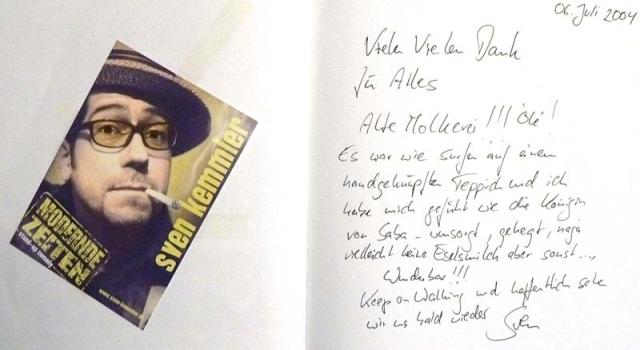 sven kemmler
MODERNDE
ZEITEN
stand-up comedy
06. Juli 2004
Vielen Vielen Dank
für Alles
Alte Molkerei!!! Olé!
Es war wie Surfen auf einem
handgeknüpften Teppich und ich
habe mich gefühlt wie die Königin
von Saba - umsorgt, gehegt, naja
vielleicht keine Eselsmilch aber sonst...,
Wunderbar!!!
Keep on Walking und hoffentlich sehn
wir uns bald wieder
Sven